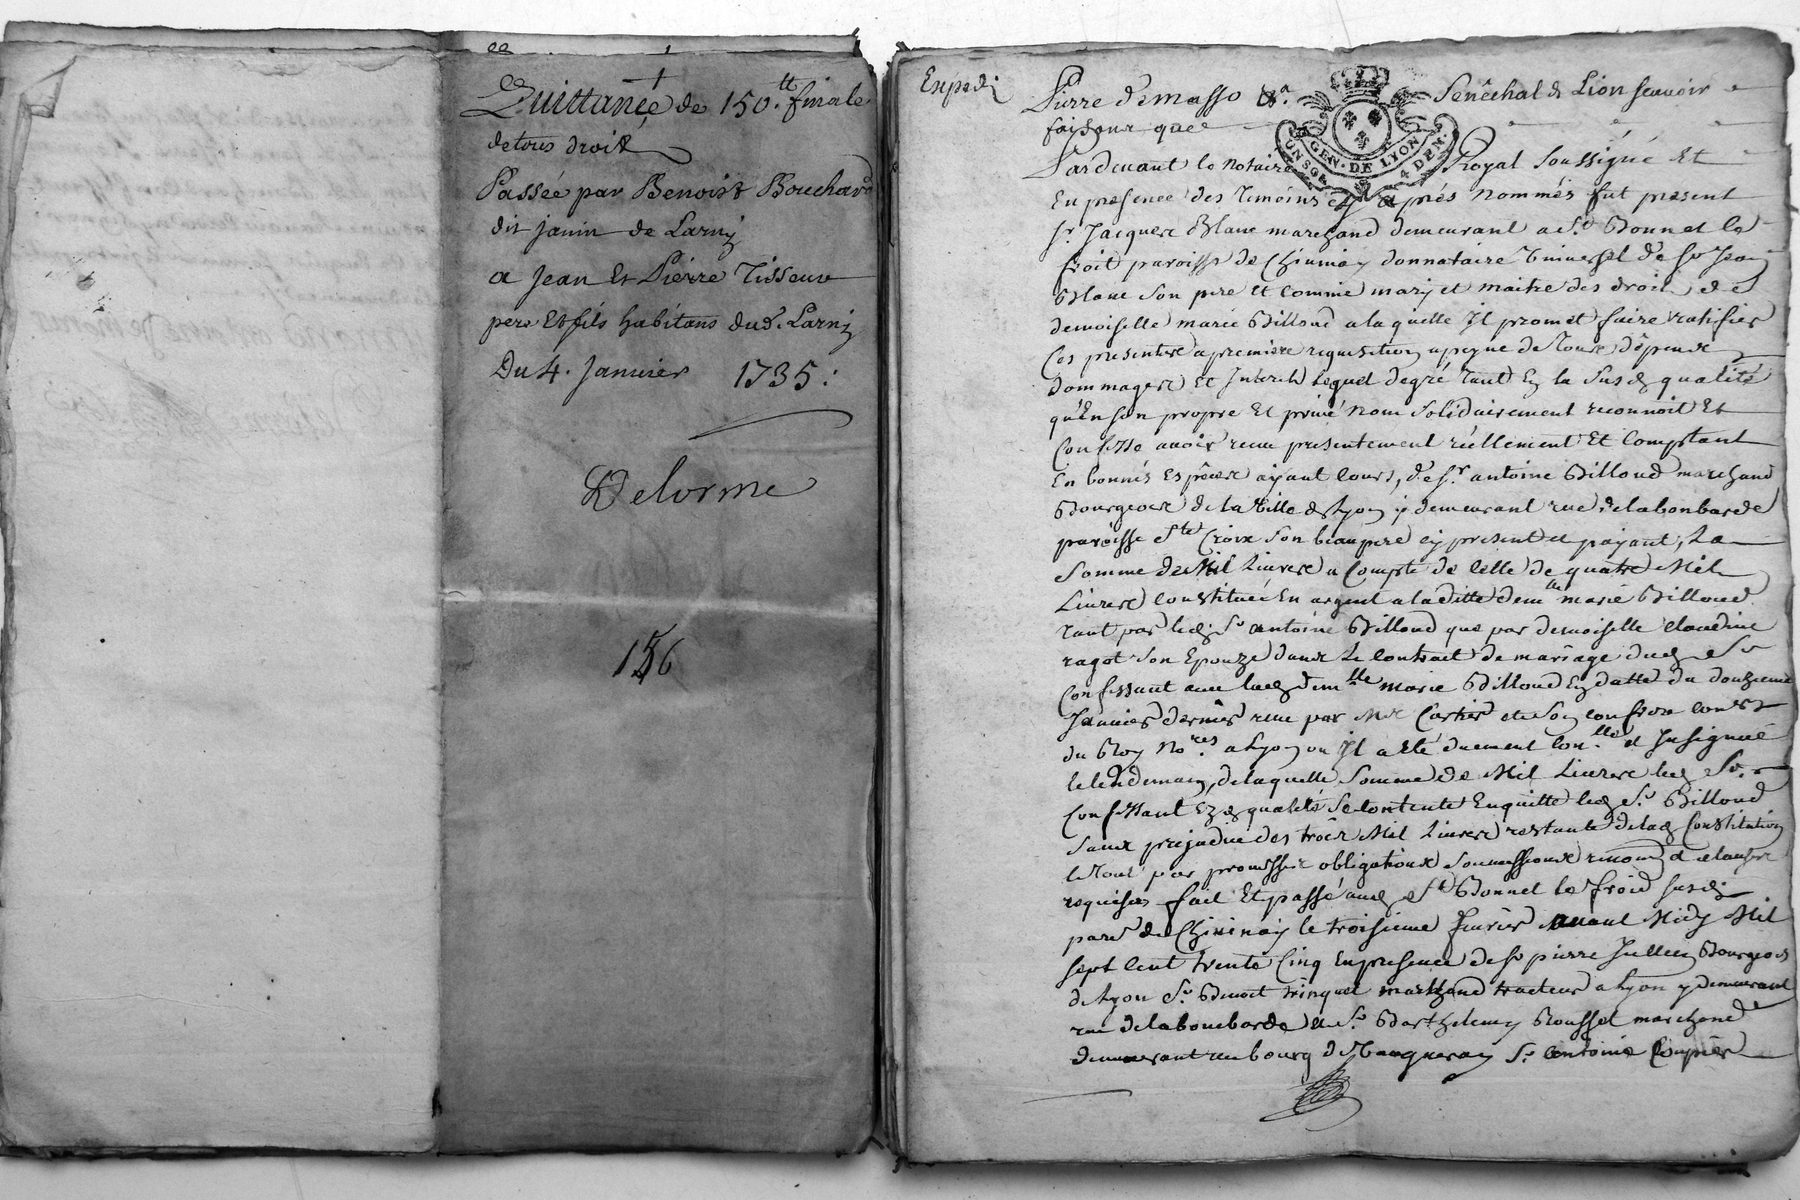 Quittance de 150.tt finale
de tous droit
Passée par Benoist Bouchard
dit janin de Larny
a Jean Et Pierre Tisseur
pere Et fils habitans dud. Larny
Du 4. Janvier 1735 :
Delorme
156
Expedi
Pierre Demasso Senêchal de Lion scavoir
faisons que
GEN. DE LYON
UN SOL 4 DEN.
Pardevant le Notaire Royal Soussigné Et
En presence des Temoins cy aprés Nommés fut present
Sr. Jacques Blanc marchand demeurant a St. Bonnet le
froit paroisse de Chivinay donnataire Vniversel de Sr Jean
Blanc Son pere Et comme mary et maitre des droits de
demoiselle marie Billoud a laquelle Il promet faire ratifier
Ces presentes a premiere requisition a peyne de Tous dêpens
dommages Et Interets lequel de gré Tant En la Susd. qualité
qu'En son propre Et privé Nom Solidairement reconnoit Et
Confesse avoir receu presentement réellement Et Comptant
En bonnes Espêces ayant Cours, de Sr. antoine Billoud marchand
Bourgeois de la Ville de Lyon y demeurant rue de la bonbarde
paroisse Ste Croix Son beaupere cy present et payant, La
Somme de Mil Livres a Compte de Celle de quatre Mil
Livres Constituée En argent a la ditte demlle marie Billoud
Tant par led. Sr antoine Billoud que par demoiselle claudine
ragot Son Epouze dans Le Contrait de mariage dud. Sr
Confessant avec lad. demlle marie Billoud En datte du douzieme
Janvier dernier receu par Me Cartier et Son Confrere Coners
du Roy Nores. a Lyon ou Il a Eté duement Con.llé et Insignué
le lendemain, de laquelle Somme de Mil Livres led. Sr.
Confessant Ezd. qualités Se Contente En quitte led. Sr. Billoud
Sans prejudice des trois Mil Livres restants de lad. Constitution
le Tout par promesses obligations Soumissions renon. et clauses
requises fait Et passé aud. St Bonnet le froid susd.
parr. de Chivinay le troisieme fevrier avant Midy Mil
Sept Cent trente Cinq En presence de Sr pierre Jullien Bourgeois
de Lyon Sr. Benoit trinquet marchand tracteur a Lyon y demeurant
rue de la bonbarde et Sr. Barthelemy Rousset marchand
demeurant au bourg de Vaugneray Sr. antoine Coupier